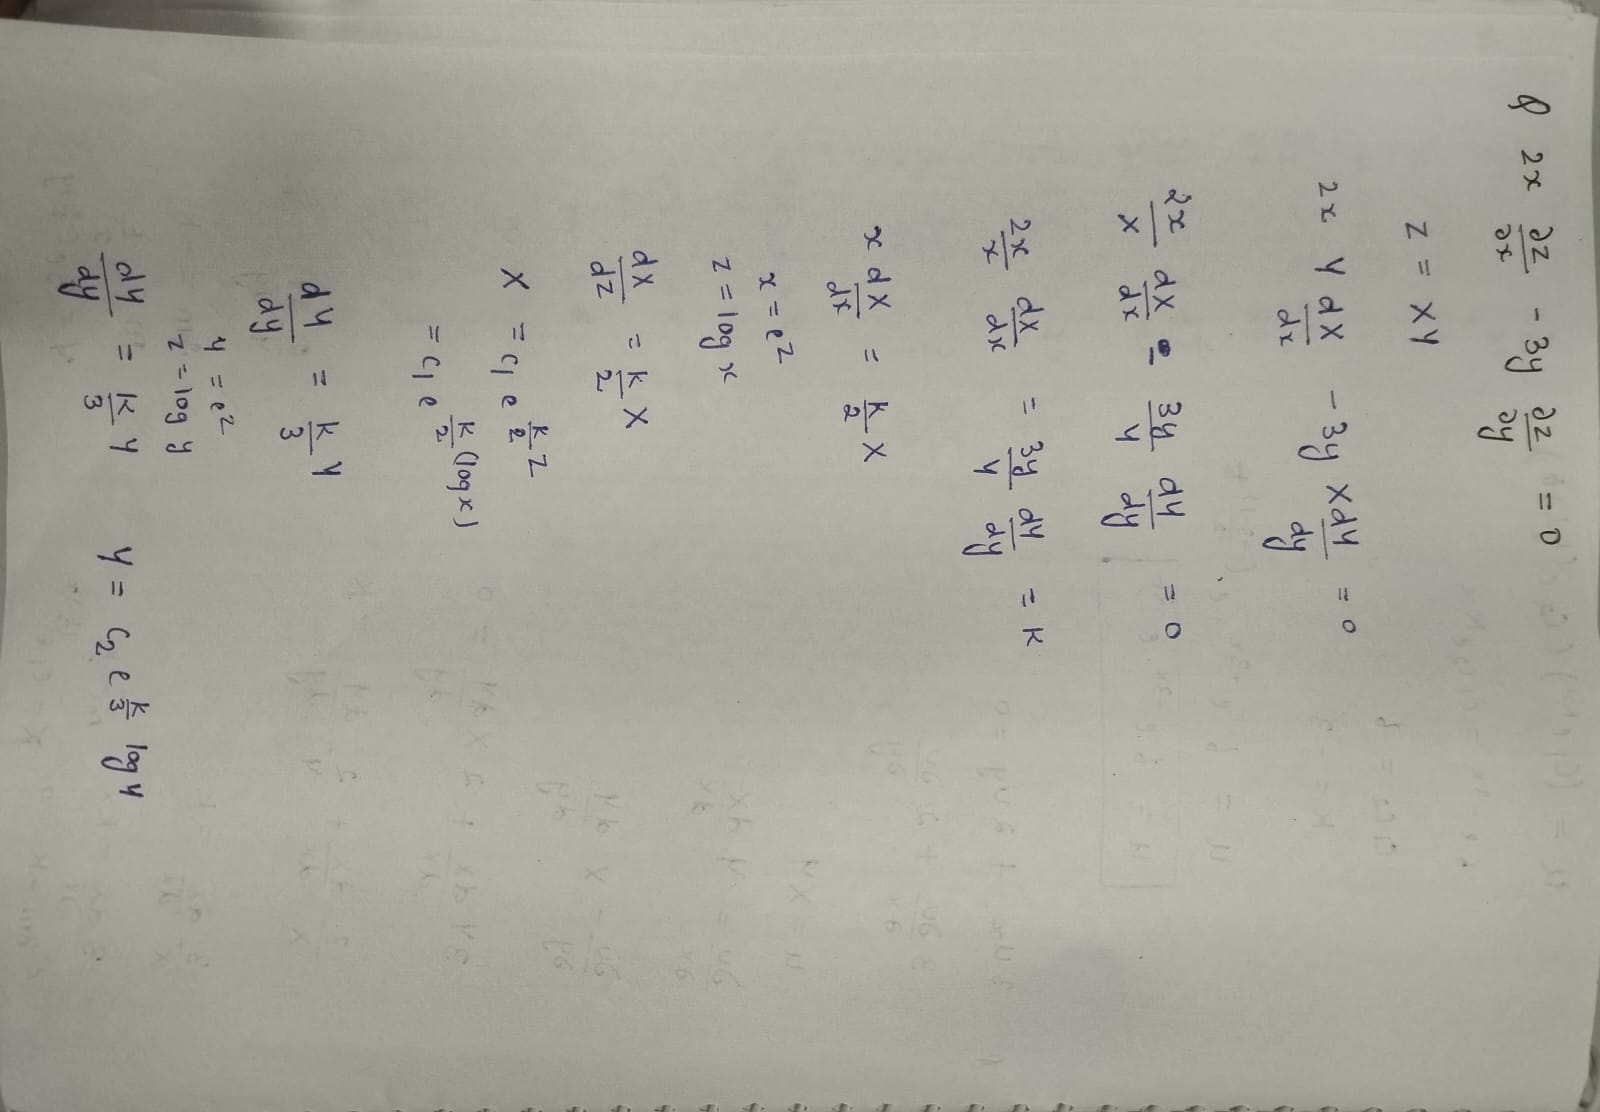 Q 2x ∂z/∂x - 3y ∂z/∂y = 0
z = XY
2x Y dX/dx - 3y X dY/dy = 0
2x/X dX/dx - 3y/Y dY/dy = 0
2x/X dX/dx = 3y/Y dY/dy = K
x dX/dx = K/2 X
x = e^z
z = log x
dX/dz = K/2 X
X = C₁ e^(K/2 z)
= C₁ e^(K/2 (log x))
dY/dy = K/3 Y
y = e^z
z = log y
dY/dy = K/3 Y Y = C₂ e^(K/3) log y